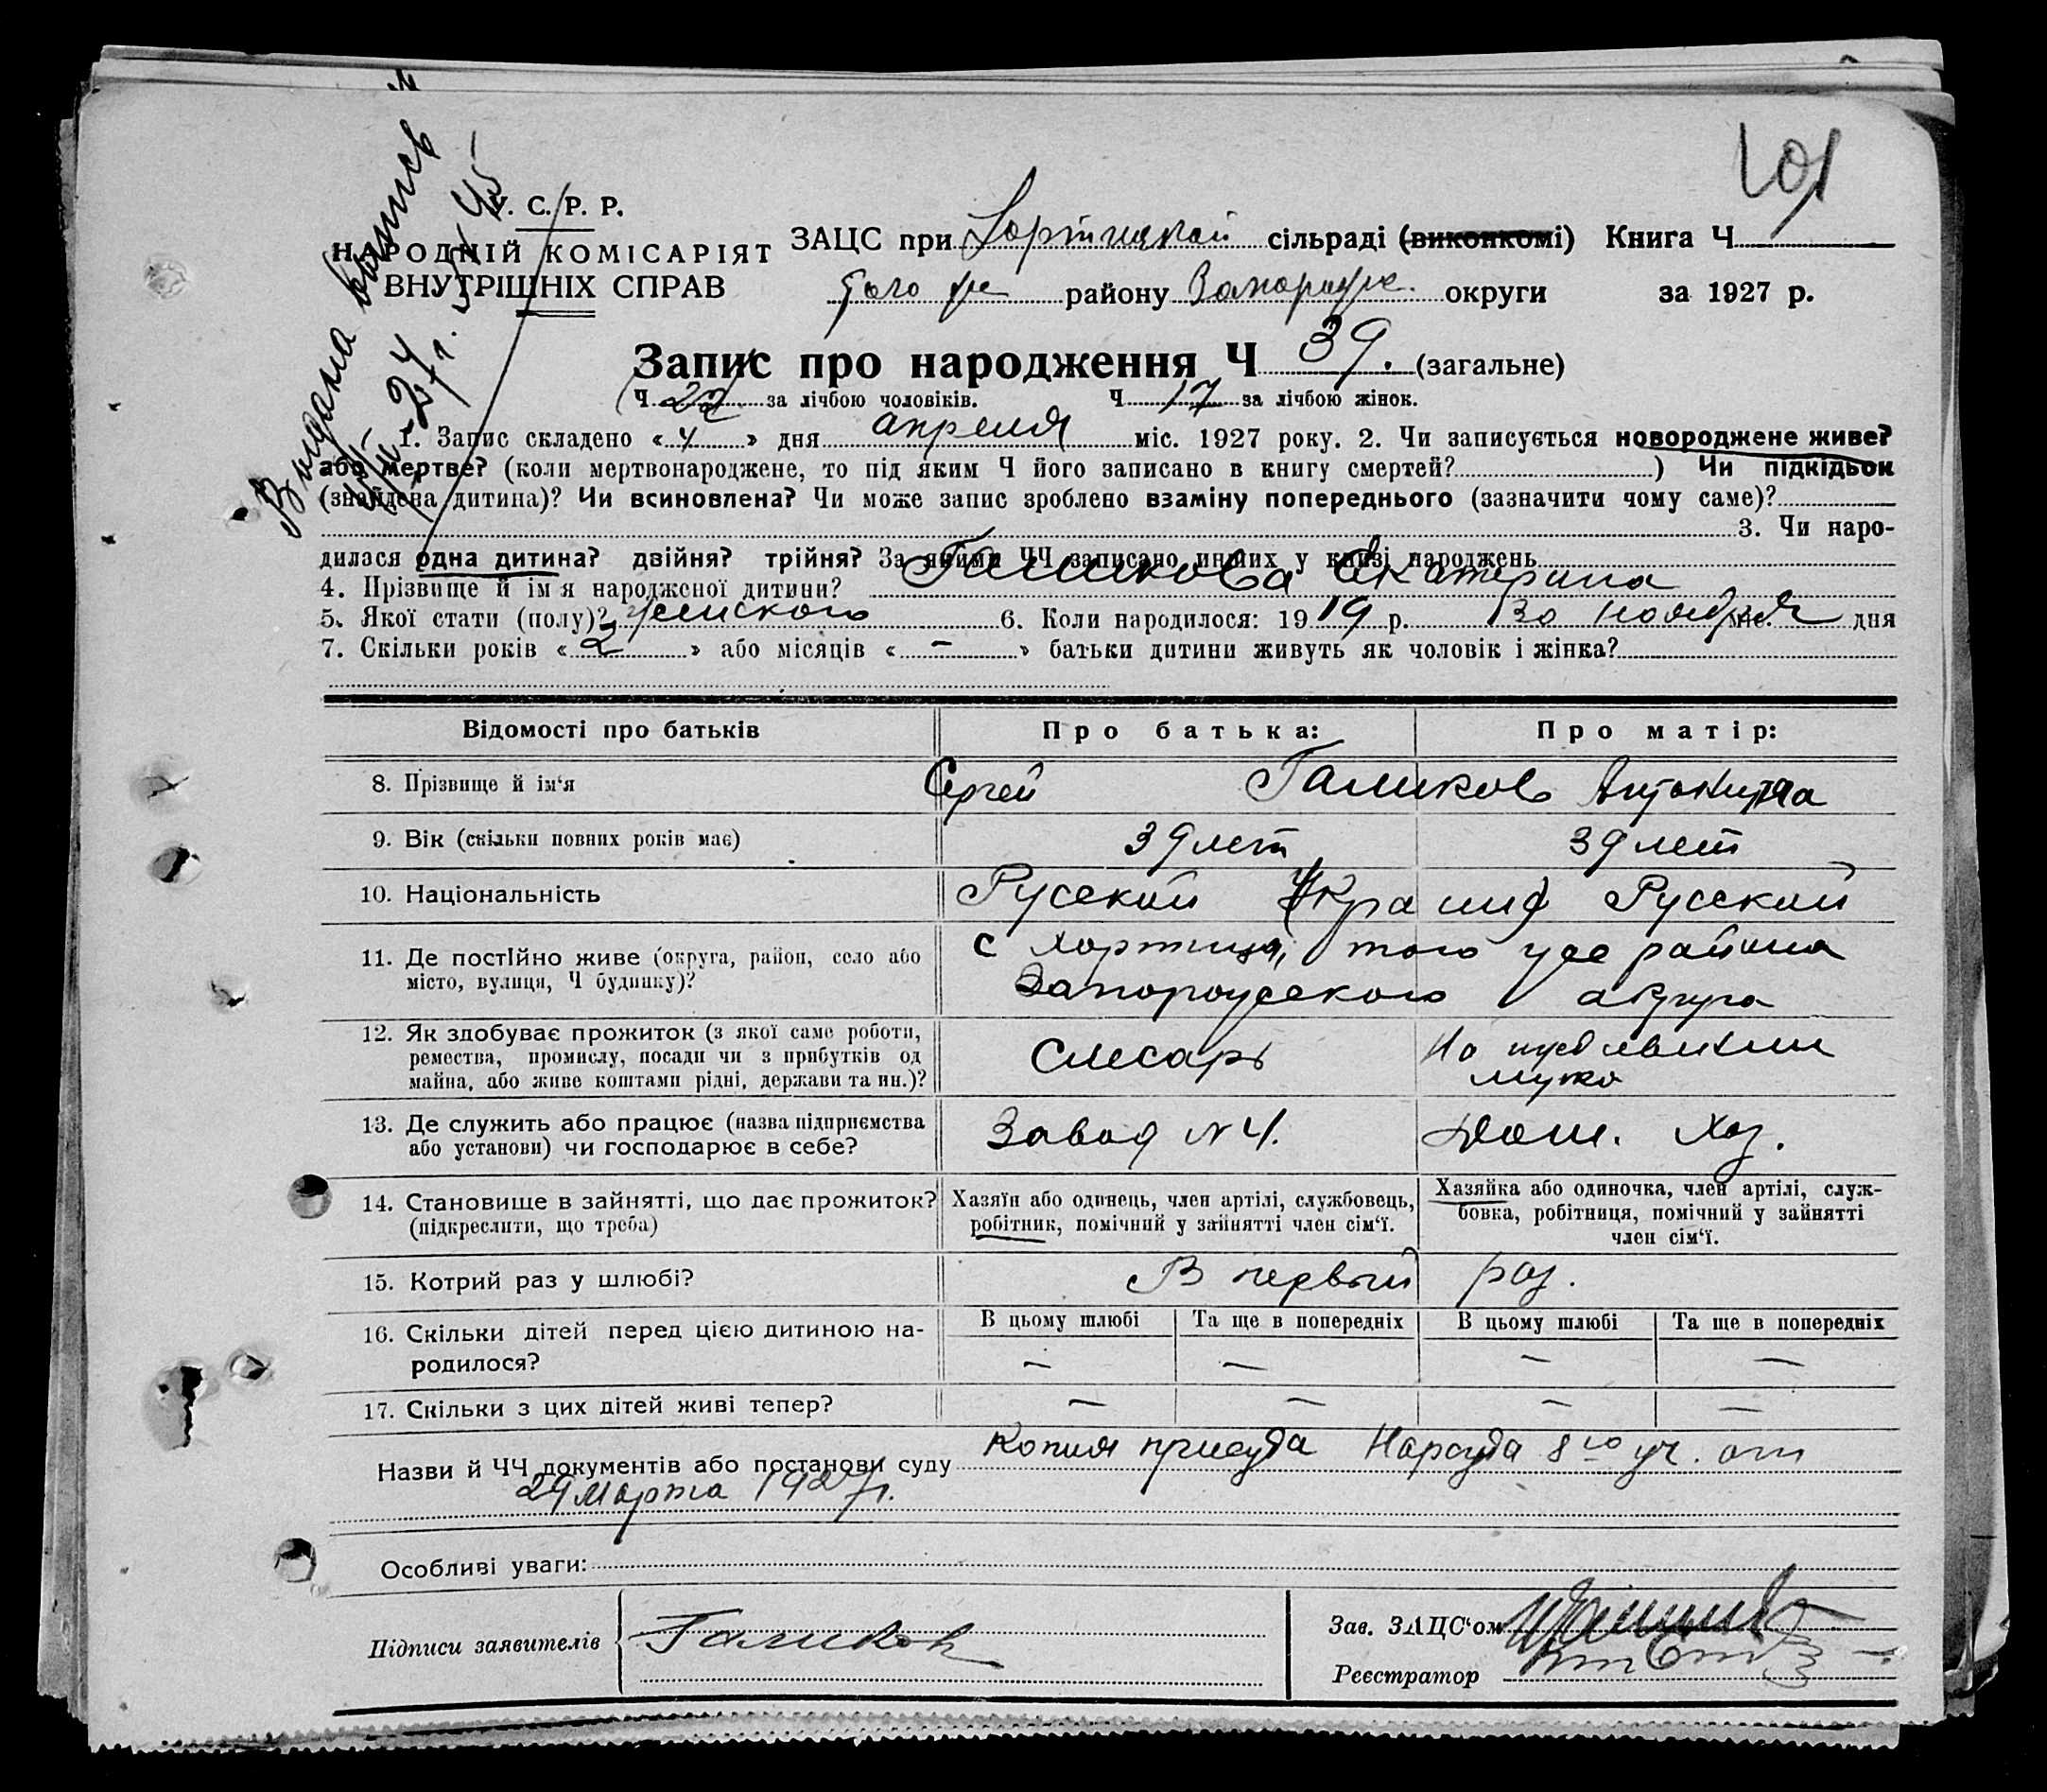 101
У. С. Р. Р.
НАРОДНІЙ КОМІСАРІЯТ
ВНУТРІШНІХ СПРАВ
Видана выпись
ЗАЦС при Хортицкой сільраді (виконкомі) Книга Ч
того же району Запорожс. округи за 1927 р.
Запис про народження Ч 39. (загальне)
(Ч 22 за лічбою чоловіків. Ч 17 за лічбою жінок.
1. Запис складено «4» дня апреля міс. 1927 року. 2. Чи записується новороджене живе?
або мертве? (коли мертвонароджене, то під яким Ч його записано в книгу смертей? ) Чи підкідьок
(знайдена дитина)? Чи всиновлена? Чи може запис зроблено взаміну попереднього (зазначити чому саме)?
3. Чи наро-
дилася одна дитина? двійня? трійня? За якими ЧЧ записано инших у книзі народжень
4. Прізвище й ім'я народженої дитини? Галикова Екатерина
5. Якої стати (полу)? женского 6. Коли народилося: 1919 р. 30 ноября дня
7. Скільки років «2» або місяців «–» батьки дитини живуть як чоловік і жінка?
Відомості про батьків Про батька: Про матір:
8. Прізвище й ім'я Сергей Галиков Антонина
9. Вік (скільки повних років має) 39 лет 39 лет
10. Національність Русский Украинд Русский
11. Де постійно живе (округа, район, село або с Хортица, того же района
місто, вулиця, Ч будинку)? Запорожского округа
12. Як здобуває прожиток (з якої саме роботи,
ремества, промислу, посади чи з прибутків од
майна, або живе коштами рідні, держави та ин.)? Слесарь На иждевении мужа
13. Де служить або працює (назва підприємства
або установи) чи господарює в себе? Завод №4. Дом. Хоз.
14. Становище в зайнятті, що дає прожиток?
(підкреслити, що треба)
Хазяїн або одинець, член артілі, службовець,
робітник, помічний у зайнятті член сім'ї.
Хазяйка або одиночка, член артілі, служ-
бовка, робітниця, помічний у зайнятті
член сім'ї.
15. Котрий раз у шлюбі? В первый раз.
16. Скільки дітей перед цією дитиною на-
родилося?
В цьому шлюбі Та ще в попередніх В цьому шлюбі Та ще в попередніх
– – – –
17. Скільки з цих дітей живі тепер? – – – –
Назви й ЧЧ документів або постанови суду Копия присуда Нарсуда 8го уч. от
29 Марта 1927 г.
Особливі уваги:
Підписи заявителів Галиков
Зав. ЗАЦС'ом
Реєстратор